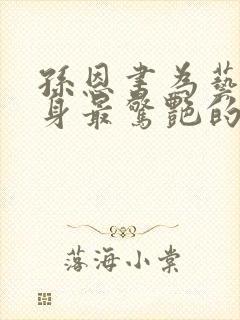 孫恩書為藝
身最驚艷的
落海小棠